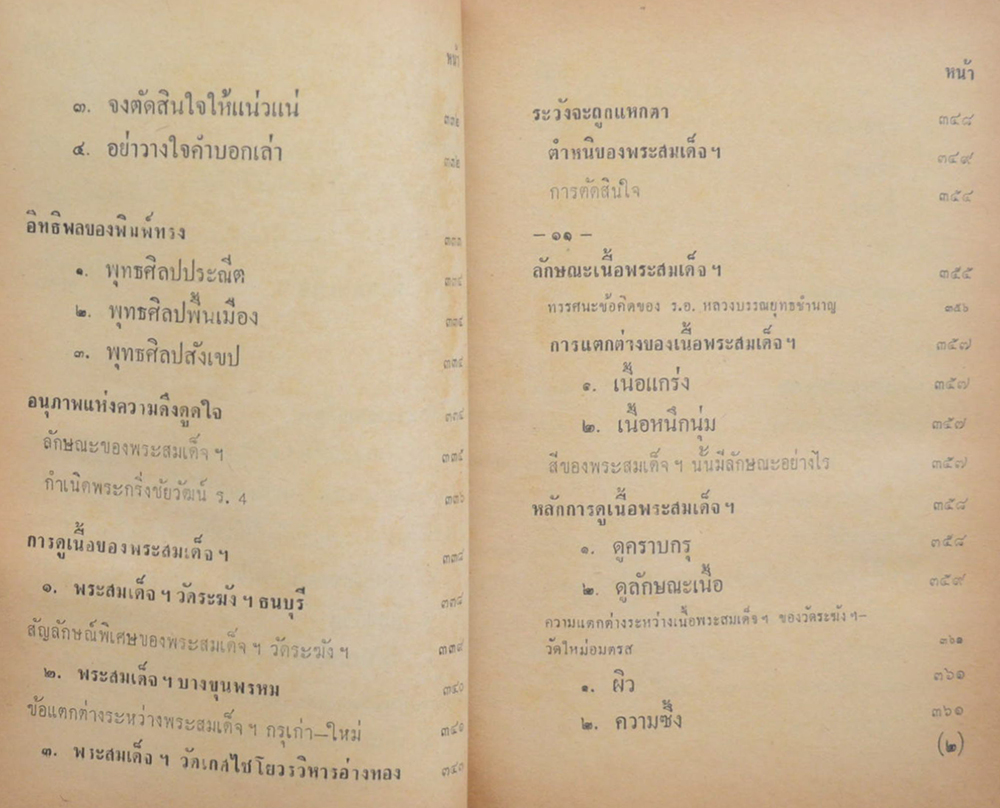 หน้า
๓. จงตัดสินใจให้แน่วแน่ ๓๓๑
๔. อย่าวางใจคำบอกเล่า ๓๓๒
อิทธิพลของพิมพ์ทรง ๓๓๓
๑. พุทธศิลปประณีต ๓๓๔
๒. พุทธศิลปพื้นเมือง ๓๓๔
๓. พุทธศิลปสังเขป ๓๓๔
อนุภาพแห่งความดึงดูดใจ ๓๓๔
ลักษณะของพระสมเด็จ ฯ ๓๓๔
กำเนิดพระกริ่งชัยวัฒน์ ร. 4 ๓๓๖
การดูเนื้อของพระสมเด็จ ฯ ๓๓๘
๑. พระสมเด็จ ฯ วัดระฆัง ฯ ธนบุรี ๓๓๘
สัญลักษณ์พิเศษของพระสมเด็จ ฯ วัดระฆัง ฯ ๓๓๙
๒. พระสมเด็จ ฯ บางขุนพรหม ๓๔๐
ข้อแตกต่างระหว่างพระสมเด็จ ฯ กรุเก่า–ใหม่ ๓๔๑
๓. พระสมเด็จ ฯ วัดเกศไชโยวรวิหารอ่างทอง ๓๔๓
หน้า
ระวังจะถูกแหกตา ๓๔๘
ตำหนิของพระสมเด็จ ฯ ๓๔๙
การตัดสินใจ ๓๕๔
– ๑๑ –
ลักษณะเนื้อพระสมเด็จ ฯ ๓๕๕
ทรรศนะข้อคิดของ ร.อ. หลวงบรรณยุทธชำนาญ ๓๕๖
การแตกต่างของเนื้อพระสมเด็จ ฯ ๓๕๗
๑. เนื้อแกร่ง ๓๕๗
๒. เนื้อหนึกนุ่ม ๓๕๗
สีของพระสมเด็จ ฯ นั้นมีลักษณะอย่างไร ๓๕๗
หลักการดูเนื้อพระสมเด็จ ฯ ๓๕๘
๑. ดูคราบกรุ ๓๕๘
๒. ดูลักษณะเนื้อ ๓๕๙
ความแตกต่างระหว่างเนื้อพระสมเด็จ ฯ ของวัดระฆัง ฯ–
วัดใหม่อมตรส ๓๖๑
๑. ผิว ๓๖๑
๒. ความซึ้ง ๓๖๑
(๒)